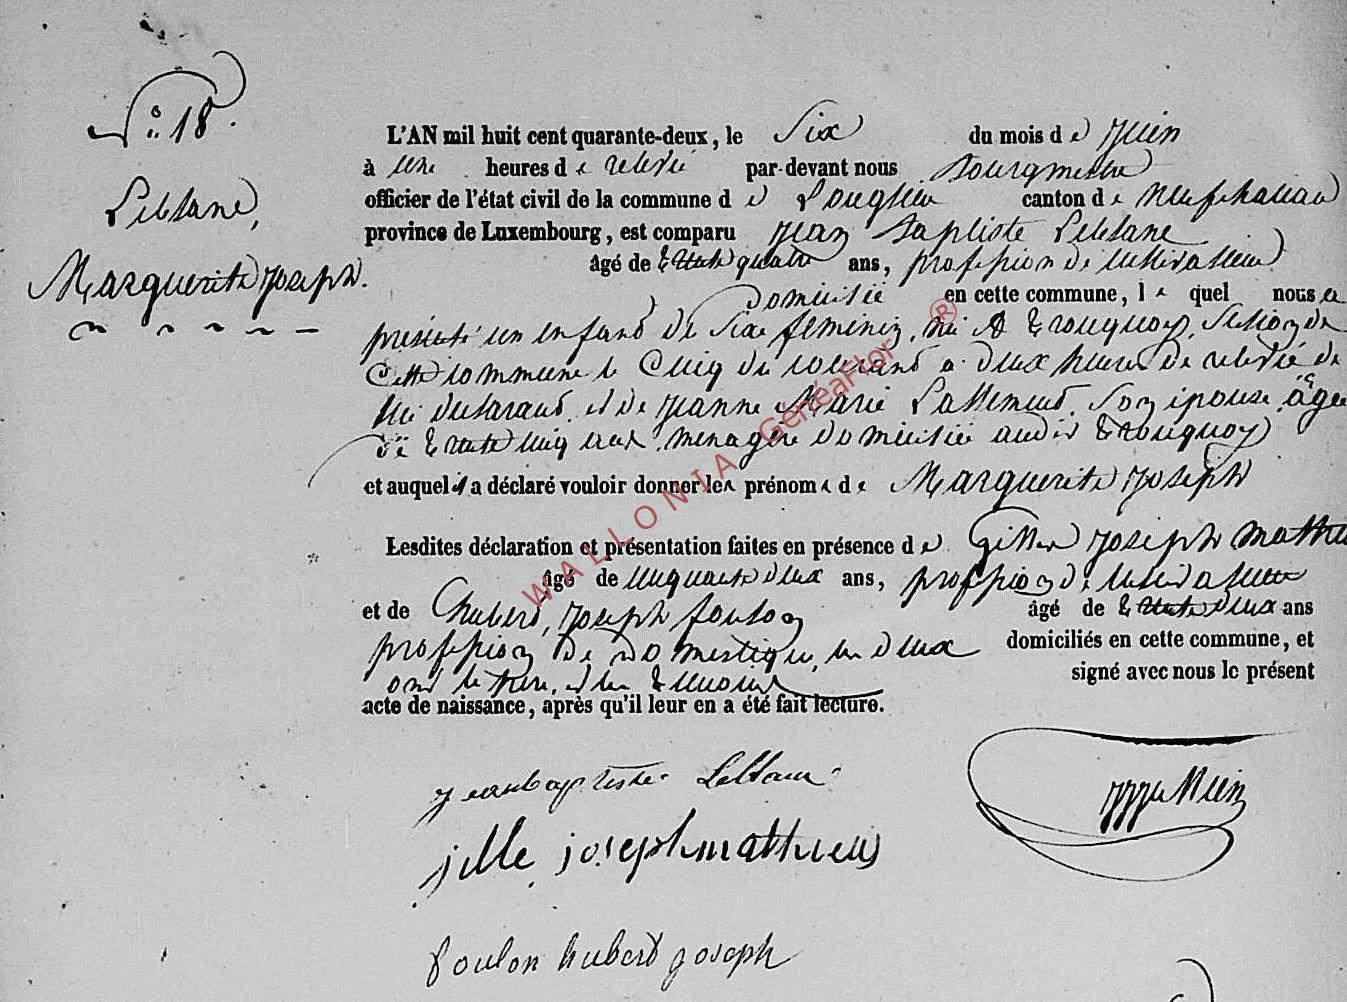 N° 18.
Leblanc,
Marguerite Joseph.
L'AN mil huit cent quarante-deux, le Six du mois de Juin
à une heures de relevé par-devant nous Bourgmestre
officier de l'état civil de la commune de Longlier canton de Neufchateau
province de Luxembourg, est comparu Jean Baptiste Leblanc
âgé de trente quatre ans, profession de cultivateur
domicilié en cette commune, lequel nous a
présenté un enfant de sexe féminin, né à Tronquoy, Section de
cette commune le Cinq du courant à deux heures de relevé de
lui déclarant et de Jeanne Marie Lallemand, son épouse, âgée
de trente cinq ans ménagère domiciliée audit Tronquoy
et auquel il a déclaré vouloir donner les prénoms de Marguerite Joseph
Lesdites déclaration et présentation faites en présence de Gilles Joseph Mathieu
âgé de cinquante deux ans, profession de cultivateur
et de Hubert, Joseph foulon âgé de trente deux ans
profession de domestique, les deux domiciliés en cette commune, et
ont le père, et les témoins signé avec nous le présent
acte de naissance, après qu'il leur en a été fait lecture.
jeanbaptiste Leblanc
jille joseph mathieus
foulon hubert joseph
WALLONIA GénéaFlor ®